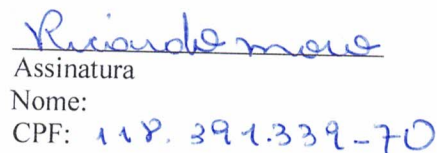 Ricardo moro
Assinatura
Nome:
CPF: 118.391.339-70